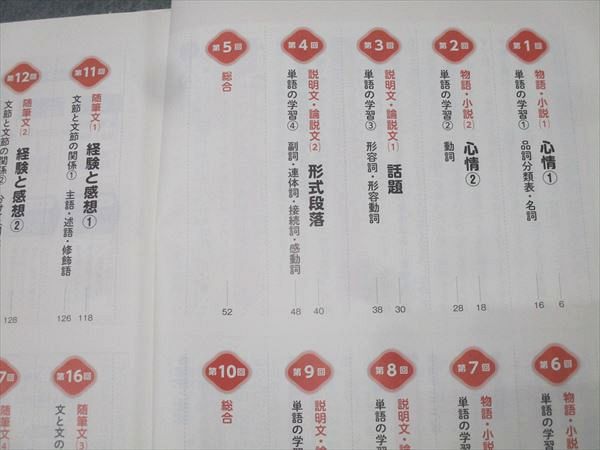 第1回
物語・小説① 心情① 6
単語の学習① 品詞分類表・名詞 16
第2回
物語・小説② 心情② 18
単語の学習② 動詞 28
第3回
説明文・論説文① 話題 30
単語の学習③ 形容詞・形容動詞 38
第4回
説明文・論説文② 形式段落 40
単語の学習④ 副詞・連体詞・接続詞・感動詞 48
第5回
総合 52
第6回
物語・小説
単語の学習
第7回
物語・小説
単語の学習
第8回
説明文・
単語の学習
第9回
説明文・論
単語の学習
第10回
総合
第11回
随筆文① 経験と感想① 118
文節と文節の関係① 主語・述語・修飾語 126
第12回
随筆文② 経験と感想②
文節と文節の関係② 128
第16回
随筆文③
文と文の
7回
随筆文④